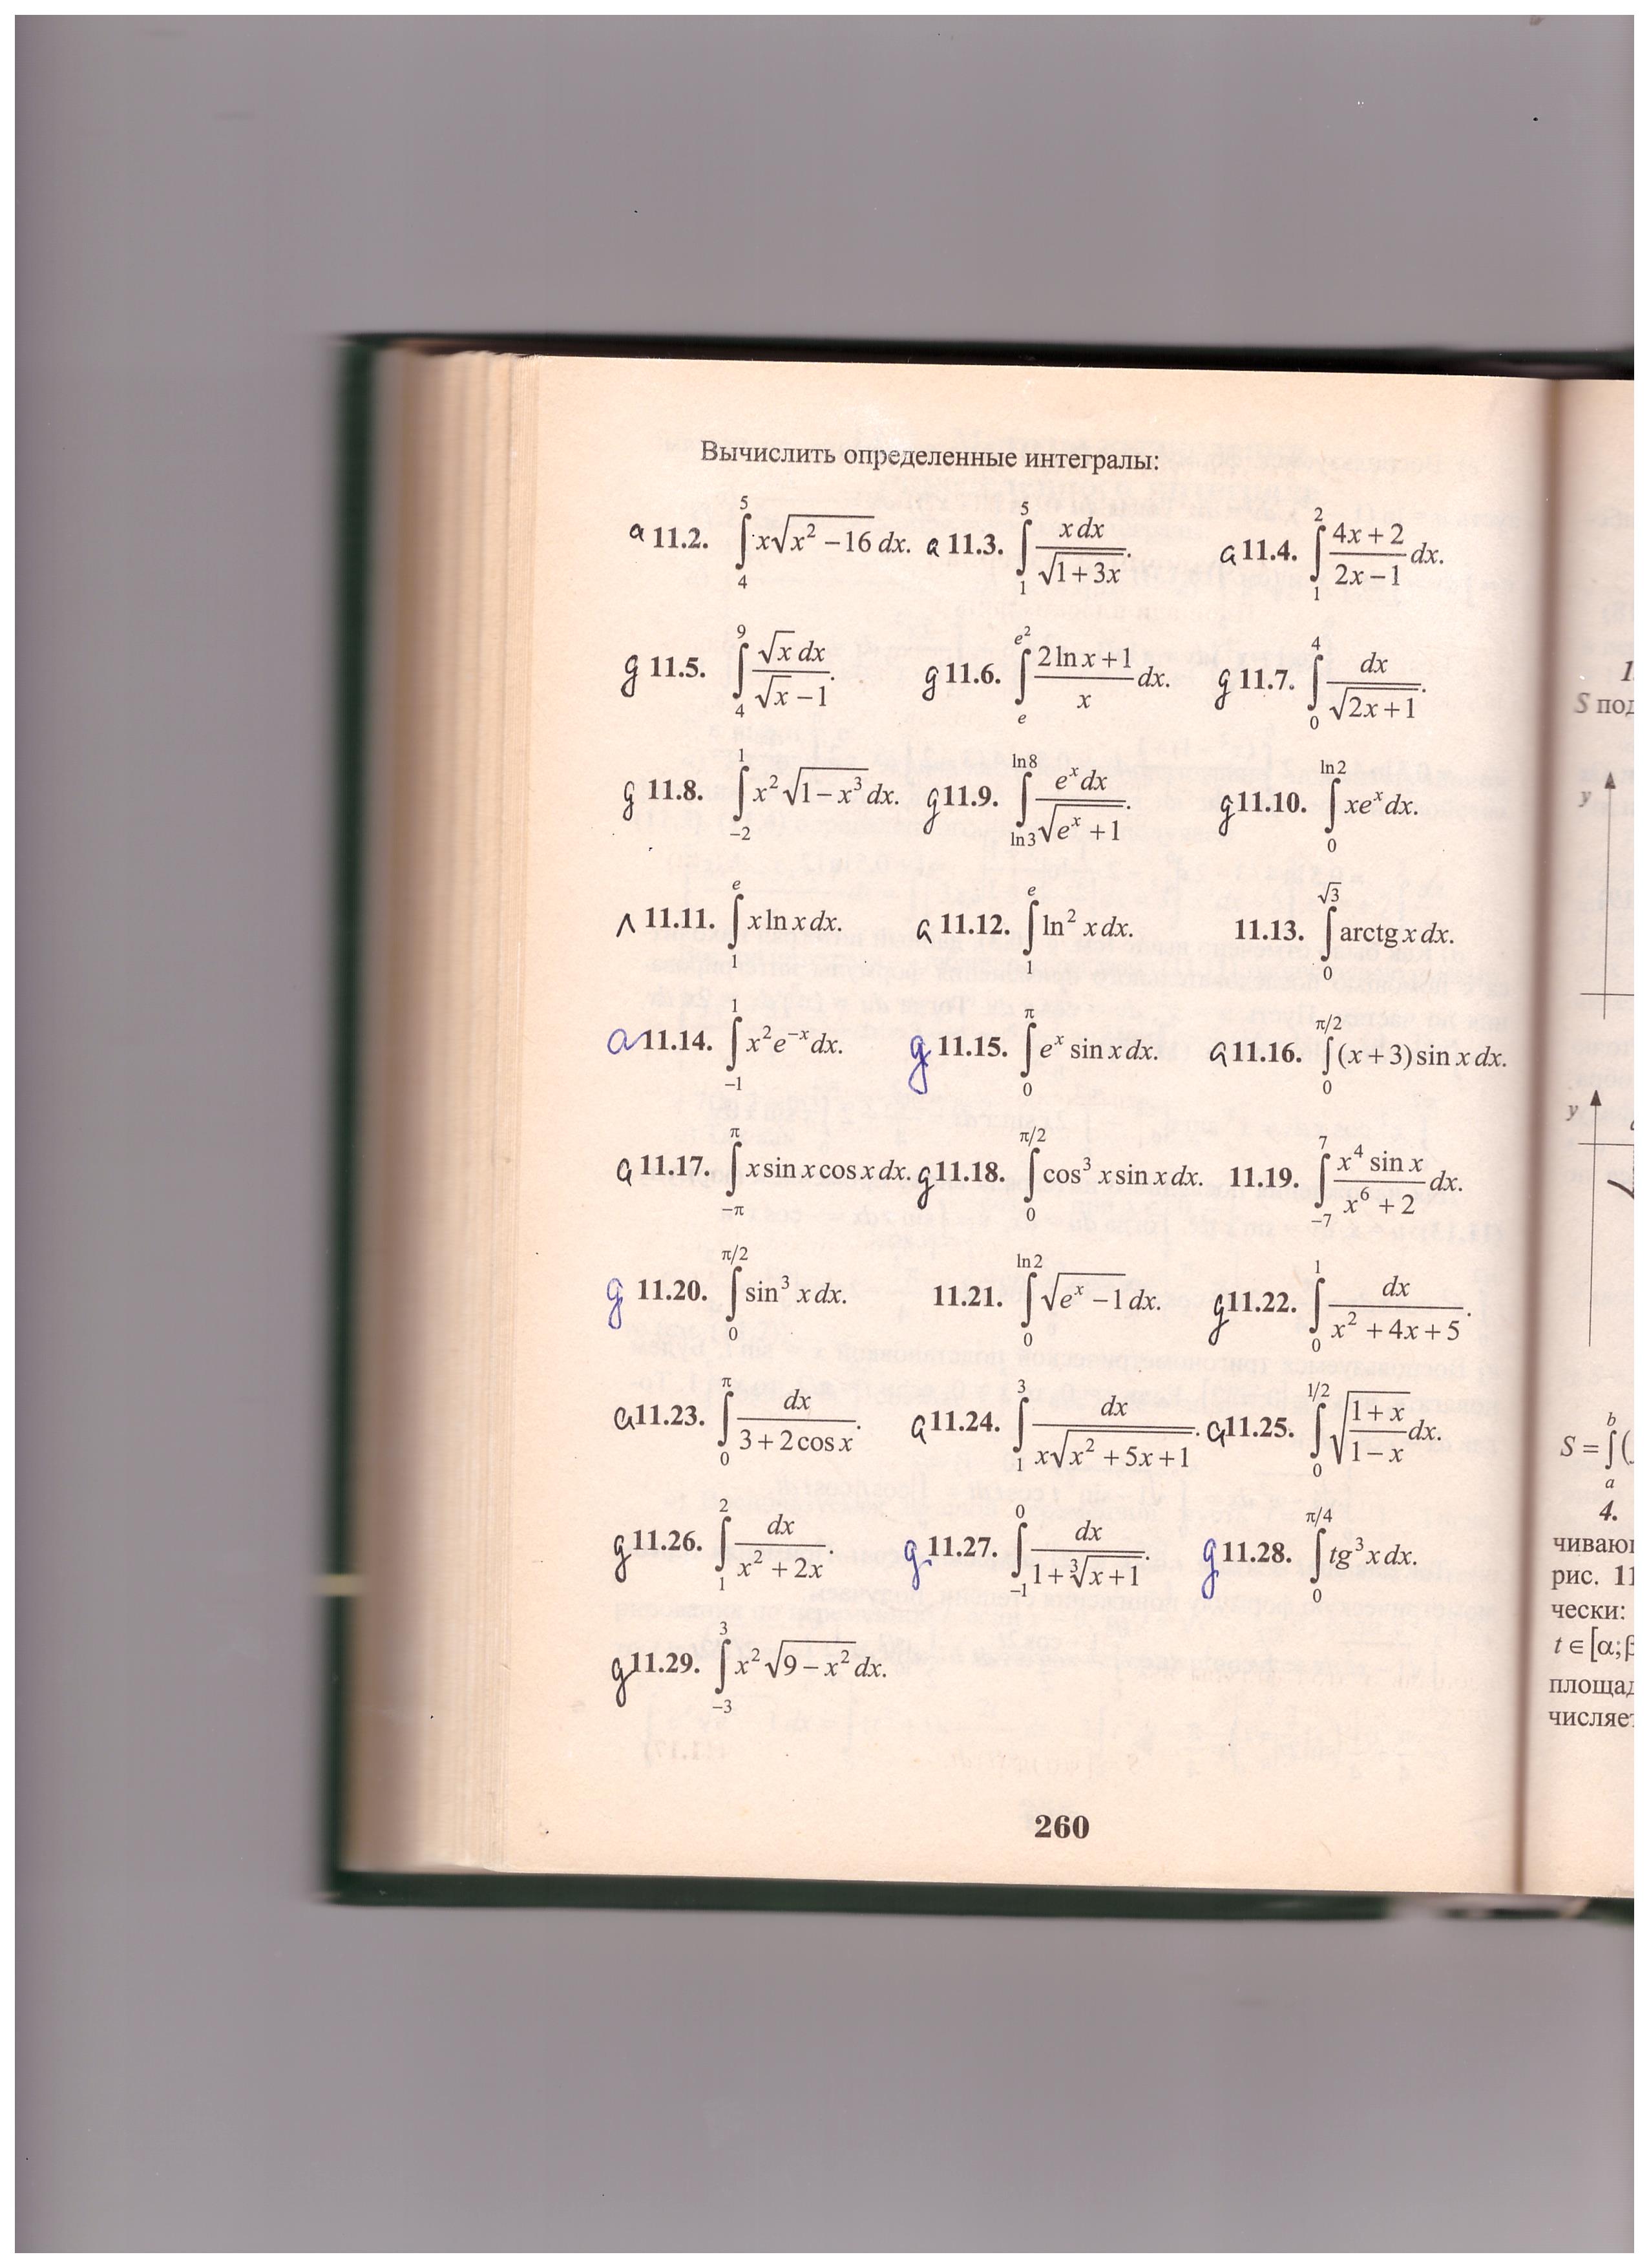 Вычислить определенные интегралы:
a 11.2. \int_{4}^{5} x\sqrt{x^2-16}\,dx. a 11.3. \int_{1}^{5} \frac{x\,dx}{\sqrt{1+3x}}. a 11.4. \int_{1}^{2} \frac{4x+2}{2x-1}dx.
g 11.5. \int_{4}^{9} \frac{\sqrt{x}\,dx}{\sqrt{x}-1}. g 11.6. \int_{e}^{e^2} \frac{2\ln x+1}{x}dx. g 11.7. \int_{0}^{4} \frac{dx}{\sqrt{2x+1}}.
g 11.8. \int_{-2}^{1} x^2\sqrt{1-x^3}\,dx. g 11.9. \int_{\ln 3}^{\ln 8} \frac{e^x dx}{\sqrt{e^x+1}}. g 11.10. \int_{0}^{\ln 2} xe^x dx.
л 11.11. \int_{1}^{e} x\ln x\,dx. a 11.12. \int_{1}^{e} \ln^2 x\,dx. 11.13. \int_{0}^{\sqrt{3}} arctg x\,dx.
a 11.14. \int_{-1}^{1} x^2 e^{-x}dx. g 11.15. \int_{0}^{π} e^x \sin x\,dx. a 11.16. \int_{0}^{π/2} (x+3)\sin x\,dx.
a 11.17. \int_{-π}^{π} x\sin x\cos x\,dx. g 11.18. \int_{0}^{π/2} \cos^3 x\sin x\,dx. 11.19. \int_{-7}^{7} \frac{x^4\sin x}{x^6+2}dx.
g 11.20. \int_{0}^{π/2} \sin^3 x\,dx. 11.21. \int_{0}^{\ln 2} \sqrt{e^x-1}\,dx. g 11.22. \int_{0}^{1} \frac{dx}{x^2+4x+5}.
a 11.23. \int_{0}^{π} \frac{dx}{3+2\cos x}. a 11.24. \int_{1}^{3} \frac{dx}{x\sqrt{x^2+5x+1}}. a 11.25. \int_{0}^{1/2} \sqrt{\frac{1+x}{1-x}}dx.
g 11.26. \int_{1}^{2} \frac{dx}{x^2+2x}. g 11.27. \int_{-1}^{0} \frac{dx}{1+\sqrt[3]{x+1}}. g 11.28. \int_{0}^{π/4} tg^3 x\,dx.
g 11.29. \int_{-3}^{3} x^2\sqrt{9-x^2}\,dx.
260
1.
S под
y
y
S = \int_{a}^{b} (
4.
рис. 11
чески:
t ∈ [α; β